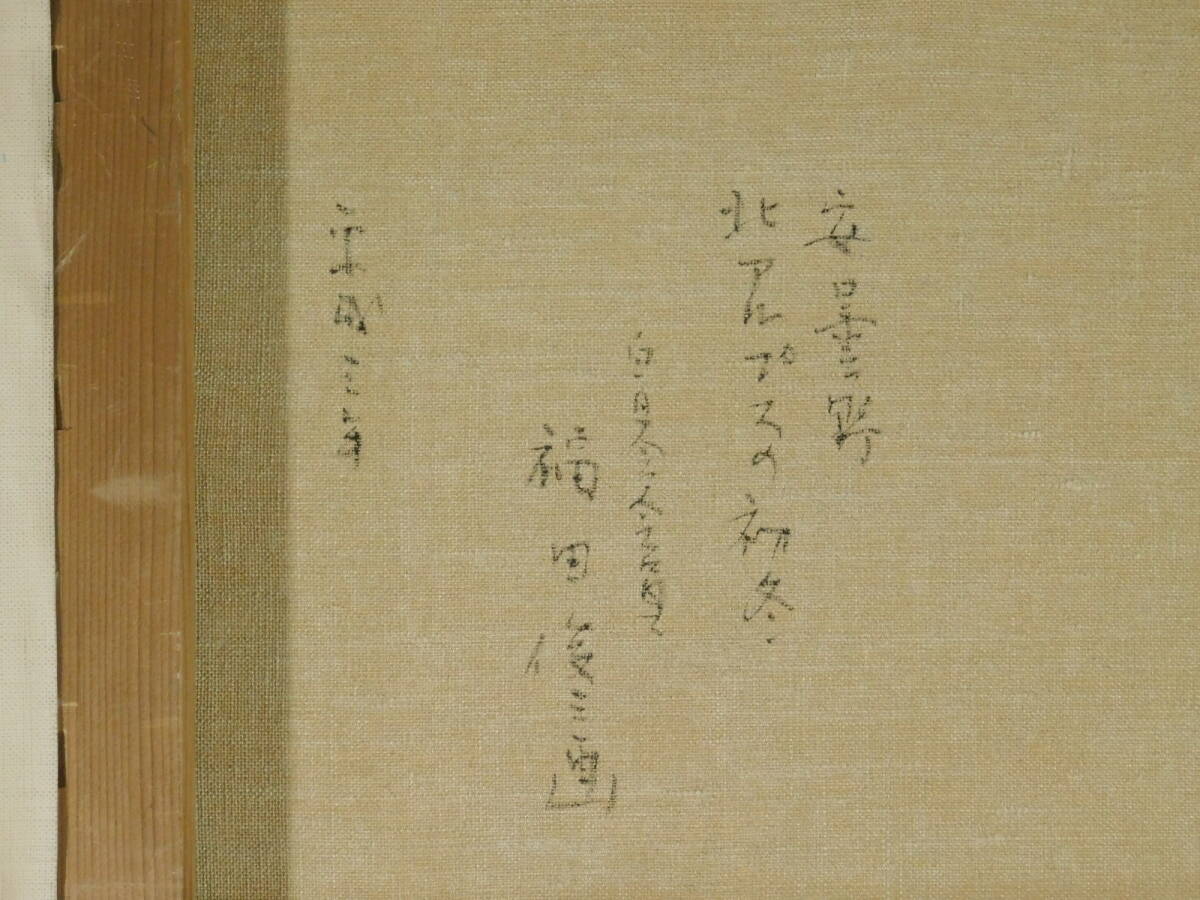 安曇野
北アルプスの初冬
白日会会員
福田俊三画
平成三年